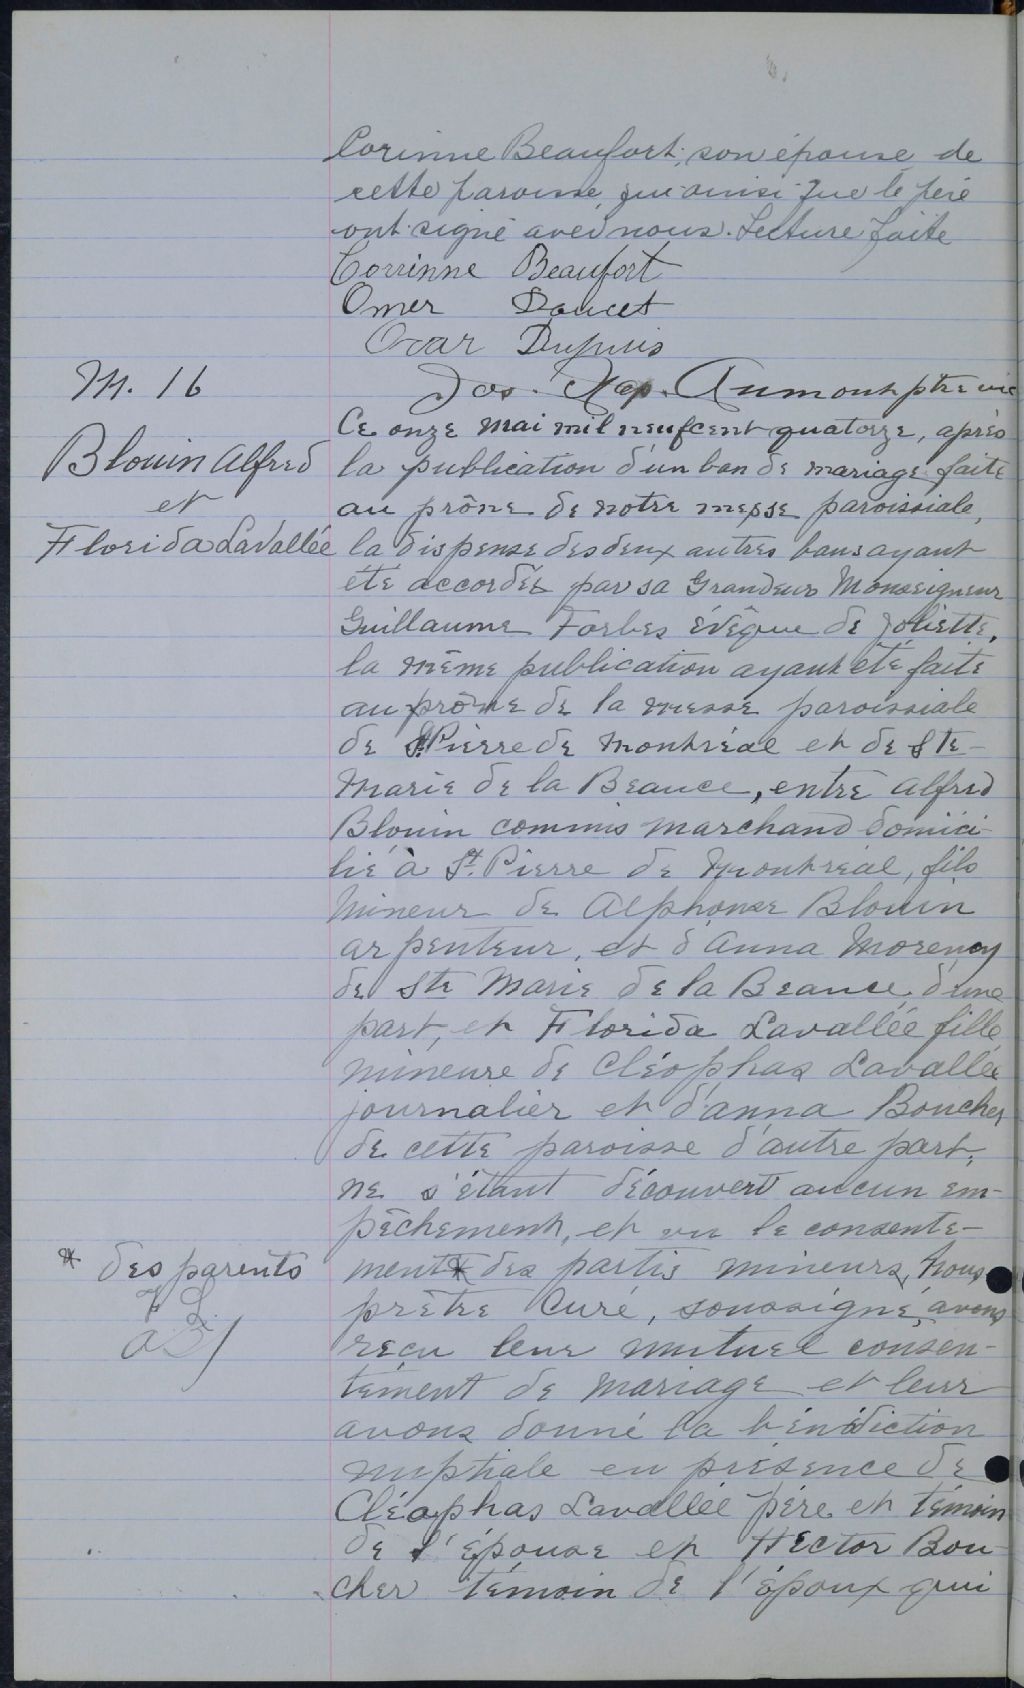 Corinne Beaufort, son épouse, de
cette paroisse, qui ainsi que le père
ont signé avec nous. Lecture faite
Corrinne Beaufort
Omer Doucet
Oscar Dupuis
Jos. Nap. Aumont ptre vic
M. 16
Blouin Alfred
et
Florida Lavallée
Ce onze mai mil neufcent quatorze, après
la publication d'un ban de mariage faite
au prône de notre messe paroissiale,
la dispense des deux autres bans ayant
été accordée par sa Grandeur Monseigneur
Guillaume Forbes évêque de Joliette,
la même publication ayant été faite
au prône de la messe paroissiale
de St Pierre de Montréal et de Ste-
Marie de la Beauce, entre Alfred
Blouin commis marchand domici-
lié à St. Pierre de Montréal, fils
mineur de Alphonse Blouin
arpenteur, et d'Anna Morency
de Ste Marie de la Beauce, d'une
part, et Florida Lavallée fille
mineure de Cléophas Lavallée
journalier et d'Anna Boucher
de cette paroisse d'autre part,
ne s'étant découvert aucun em-
pêchement, et vu le consente-
ment * des partis mineurs, Nous
* des parents
prêtre Curé, soussigné, avons
reçu leur mutuel consen-
tement de mariage et leur
avons donné la bénédiction
nuptiale en présence de
Cléophas Lavallée père et témoin
de l'épouse et Hector Bou-
cher témoin de l'époux qui